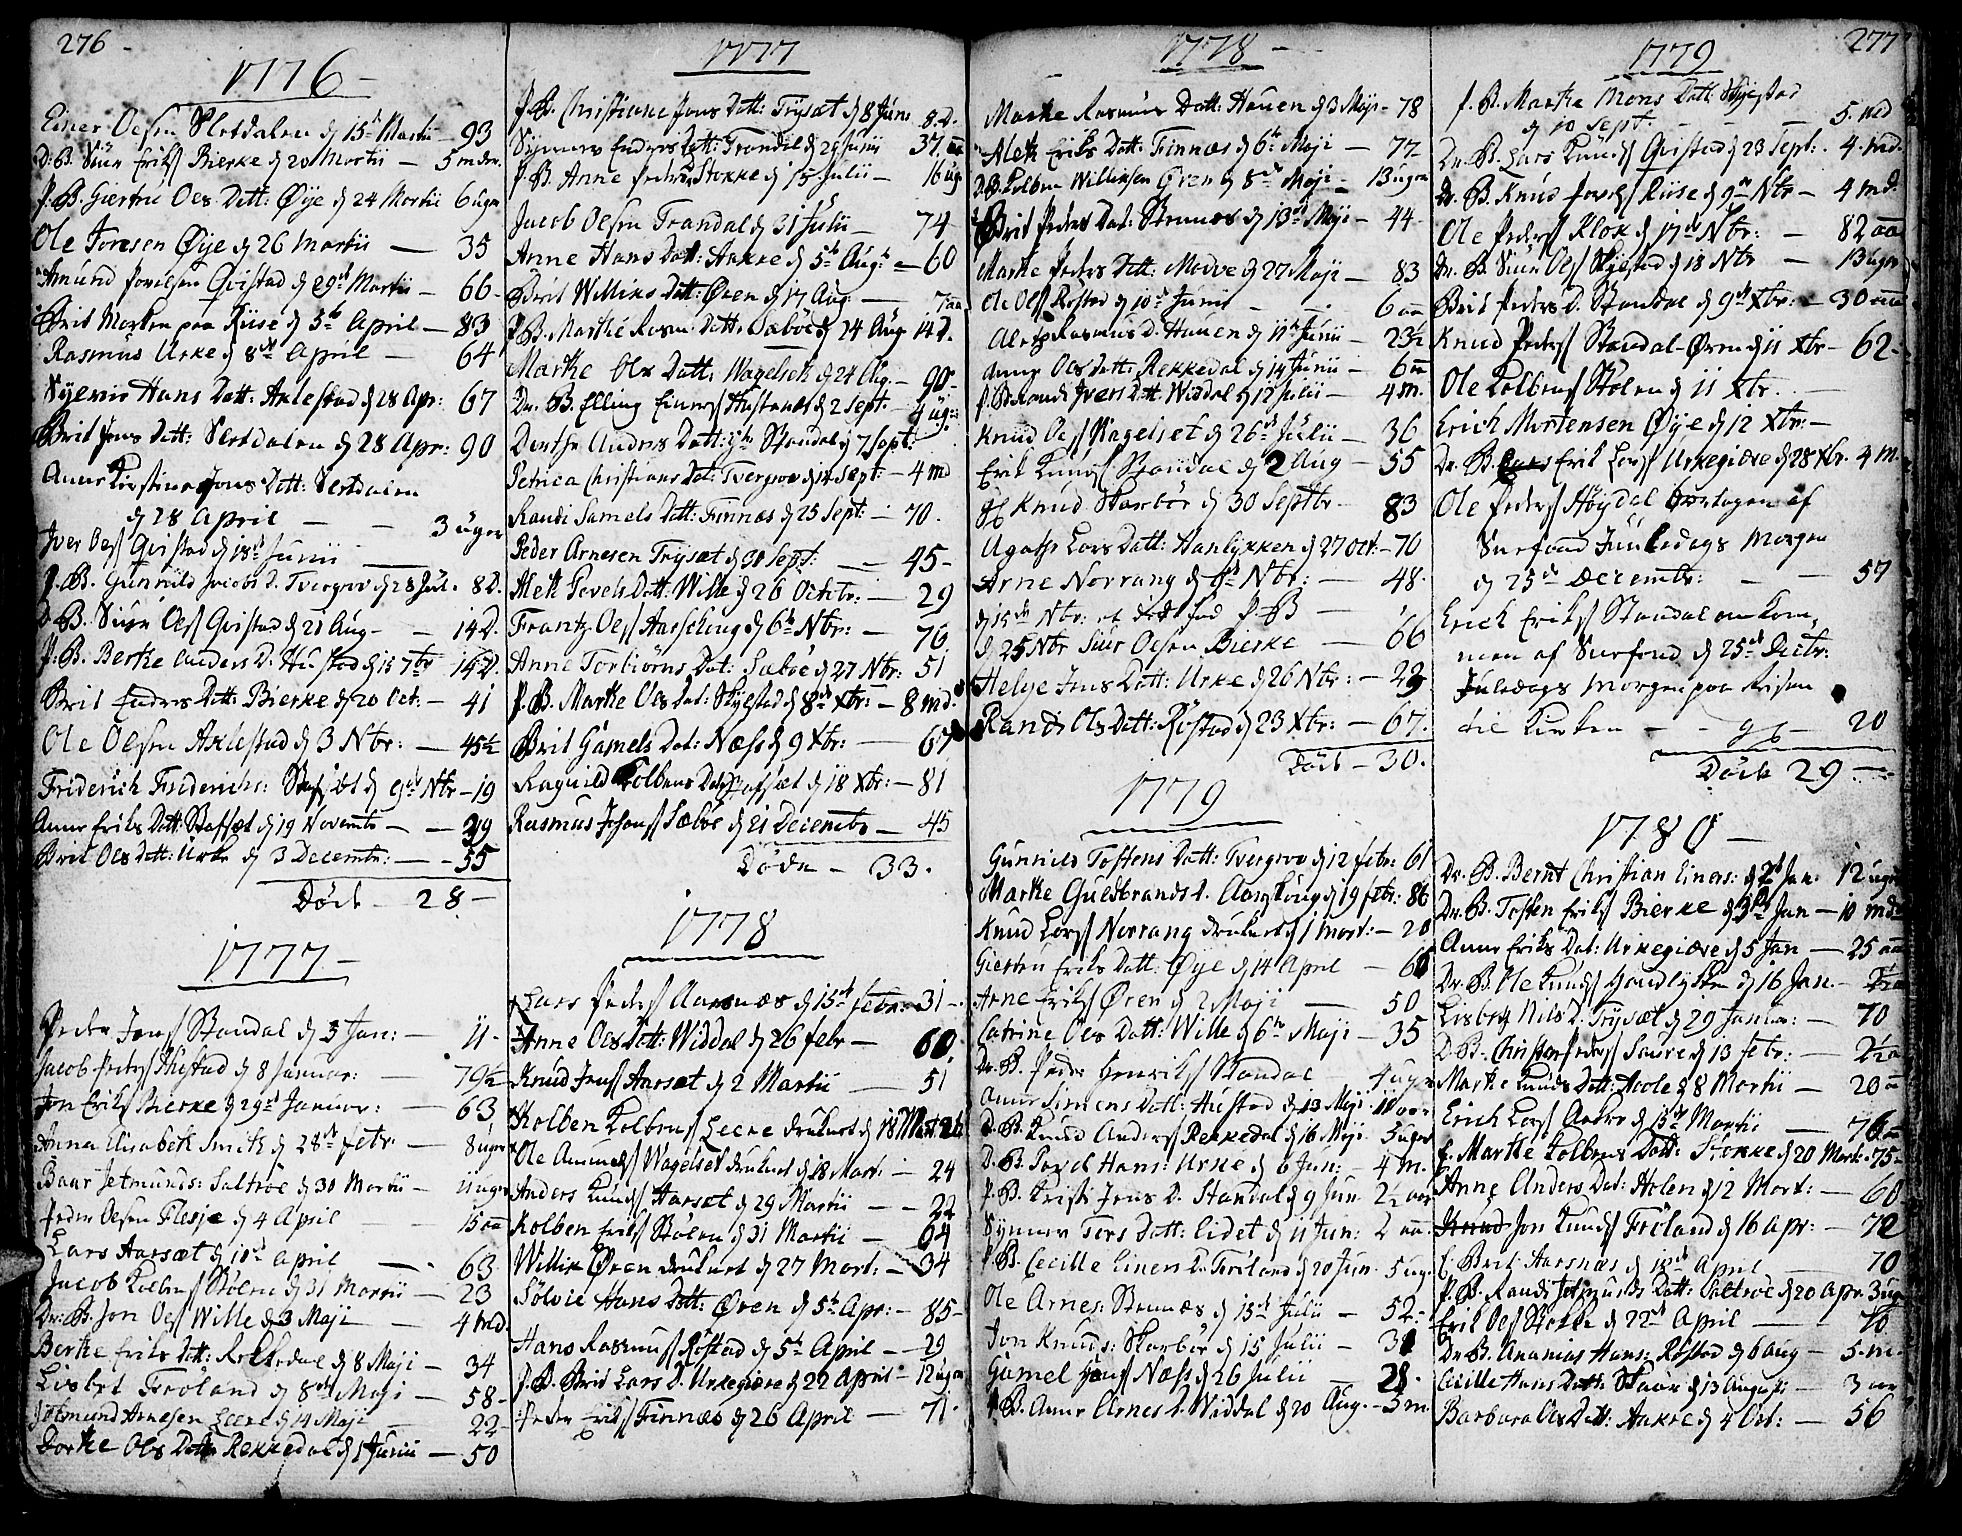 276
1776
Einer Oelsen Sletdalen d 15de Martii - 93
D: B. Siur Eriks Bierke d 20 Martii - 5 mdr.
P. B. Giertrü Oels Datt: Øye d 24 Martii 6 ugr
Ole Joresen Øye d 26 Martii - 35
Amund Povelsen Qvistad d 29de Martii - 66
Brit Morken paa Riise d 5te April - 83
Rasmus Urke d 8de April - 64
Hans Datt: Aklestad d 28 Apr: 67
Brit Jons Datt: Sletdalen d 28 Apr: 90
Anne Kirstine Jons Datt: Sletdalen
d 28 April - - 3 uger
Iver Oels Qvistad d 18de Junii
P. B. Gunnild Jacobs D. Tvergrov d 28 Jul. 8 d.
D. B. Siur Oels Qvistad d 21 Aug - - 14 d.
P. B. Berthe Anders D. Hustad d 15 7br 14 d.
Brit Enders Datt: Bierke d 20 Oct: - 41
Ole Oelsen Aklestad d 3 Nbr: - 45½
Friderich Friderichs: d 9de Nbr - 19
Anne Eriks Datt: Stafset d 19 Novembr - - 29
Brit Oels Datt: Urke d 3 Decembr: - - 55
Døde - 28 -
1777
Peder Jens Standal d 3 Jan: - 11 -
Jacob Peders Hustad d 8 Januar: 79½
Jon Eriks Bierke d 29de Januar: - 63
Anna Elisabeth Smith d 28de febr: - 8 uger
Baar Jetmunds: Saltroe d 30 Martii - 11 uger
Peder Oelsen Flesje d 4 April - 15 aa
Lars Aarsæt d 10de April - 63
Jacob Kolbens Støeren d 31 Martii - 23
Dr: B. Jon Oels Wille d 3 Maji - 4 md.
Berthe Eriks Dtt: Rekkedal d 8 Maji - 34
Lisbet Froland d 8de Maji - 58 -
Jetmund Arnesen Leere d 14 Maji - 22 -
Dorthe Oels Datt: Rekkedal d 1 Junii - 50
1777
P. B. Christiane Jons Datt: Trÿsæt d 8 Jun: 5 d.
Synneve Enders Dtt: Trandal d 29 Junii 37 aa
P. B. Anne Peders Stokke d 15 Julii - 16 ug
Jacob Oelsen Trandal d 31 Julii - 74
Anne Hans Datt: Aakre d 5te Aug: - 60
Brit Williks Datt: Øren d 17 Aug: - 7 aa
P. B. Marthe Rasm: Datt: Sæbøe d 24 Aug 14 d.
Marthe Ols Datt: Nagelset d 24 Aug. - 90 -
Dr: B. Elling Einers Hustanes d 2 Sept. - 4 ug:
Dorthe Anders Datt: Standal d 7 Sept:
Petrica Christians Dat: Tvergrov d 14 Sept: - 4 md
Randi Samels Datt: Finnæs d 25 Sept: - 70.
Peder Arnesen Trÿsæt d 30 Sept: - 45 -
Alett Povels Datt: Wille d 26 Octbr: - 29
Frantz Oels Aarschoug d 6te Nbr: - 76
Anne Torbiörns Dat: Sæbøe d 27 Nbr: 51
P. B. Marthe Ols Dat: Skÿlstad d 8de Xbr: - 8 md.
Brit Gamels Dat: Næss d 9 Xbr: - 67
Ragnild Kolbens Dat: Stafsæt d 18 Xbr: - 81
Rasmus Johans Sæbøe d 21 Decembr - 45
Døde - 33.
1778
Lars Peders Aarsnæs d 15de febr: - 31 -
Anne Oels Datt: Widdal d 26 febr - 60.
Knud Jens Aarsæt d 2 Martii - 51
Kolben Kolbens Leere druknet d 18 Mart. 26
Ole Nagelset druknet d 18 Mart: - 24
Anders Knuds Aarsæt d 29 Martii - - 22
Kolben Eriks Støeren d 31 Martii - 64
Willik Øren druknet d 27 Mart: - 34
Sølvie Hans Datt: Øren d 5te Apr: - 85 -
Hans Rasmus Røstad d 5te April - 29
P. B. Brit Lars D. Urkegiære d 22 April - 12 ugr
Peder Eriks Finnæs d 26 April - 71.
1778 -
Marthe Rasmus Datt: Hauen d 3 Maji - 78
Aleth Eriks Datt: Finnæs d 6te Maji - 77 -
D. B. Kolben Williksen Øren d 8de Maji - 13 uger
Brit Peders Dat: Strmnæs d 13de Maji - 44 -
Marthe Peders Datt: Modve d 27 Maji - 83
Ole Ols Røstad d 10de Junii - - 6 aa
Aleth Rasmus D. Hauen d 11te Junii - 23½
Anne Ols Datt: Rekkedal d 14 Junii - 6 aa
P. B. Randi Ivers Dtt. Widdal d 12 Julii - 4 m.
Knud Oels Nagelset d 26de Julii - 36
Erik Knuds Standal d 2 Aug - 55
Knud Skarbøe d 30 Septbr - 83
Agathe Lars Datt: Hanlykken d 27 Oct: - 70
Arne Norrang d 8de Nbr: - 48
d 15de Nbr: et P. B -
d 25 Nbr Siur Oelsen Bierke - 66
Helge Jens Datt: Urke d 26 Nbr: - 29
Randi Ols Datt: Røstad d 23 Xbr: - 67.
Døde - 30.
1779
Gunnild Tostens Datt: Tvergrov d 12 febr: 61
Marthe Guldbrands D. Aarschoug d 19 febr: 86
Knud Lars Norrang druknet d 1 Mart: - 20
Giertru Eriks Datt: Øye d 14 April - 66
Arne Eriks Øren d 2 Maji - 50
Catrine Oels Datt: Wille d 6te Maji - 35
Dr. B. Peder Henriks Standal 4 uger
Anne Simens Datt: Hustad d 13 Maji - 11 aar
D. B. Knud Anders Rekkedal d 16 Maji 3 uger
D. B. Povel Hans: Urke d 6 Jun: - 4 m.
P. B. Kristi Jens D. Standal d 9 Jun 2½ aar
Synnev Tors Datt: Eidet d 11 Jun: 2 aar
P. B. Cecille Einers D. Froland d 20 Jun 5 ug.
Ole Arnes: Strmnæs d 13de Julii - 52 -
Jon Knuds: Skarbøe d 15 Julii - 31
Gamel Hans Næss d 26 Julii - 28.
P. B. Anne Arnes D. Widdal d 20 Aug. - 3 m.
1779
277
P. B. Marthe Mons Datt: Skylstad
d 10 Sept. - - 5 md
Dr. B. Lars Knuds Qvistad d 23 Sept: - 4 md.
Dr. B. Knud Povels Riise d 9de Nbr - 4 md.
Ole Peders Klok d 17de Nbr: - 82 aa
Dr. B Siur Oels Skylstad d 18 Nbr - 13 uger
Brit Peders D. Standal d 9de Xbr: - 30 aar
Knud Peders Standal-Øren d 11 Xbr - 62 -
Ole Kolbens StøLen d 11 Xbr. -
Erich Mortensen Øye d 12 Xbr: -
Dr. B. Erik Lars Urkegiære d 28 Xbr. 4 m.
Ole Peders Høydal bortagen af
Sneefond Juuledags Morgen
d 25de Decembr: - - 57
Erich Eriks Standal omkom,
men af Sneefond d 25de Decbr:
Juledags Morgen paa Reisen
til Kirken - - 20
Døde 29 -
1780 -
Dr. B. Bernt Christian Einers: d 2de Jan. 12 uger
Dr. B. Tosten Eriks Bierke d 3de Jan - 10 md
Anne Eriks Dat: Urkegiære d 5 Jan - 25 aa
Dr. B. Ole Knuds Hanlykken d 16 Jan. -
Lisbeth Nils D. Trÿsæt d 29 Januar: - 70
D. B. Christen Peders Saure d 13 febr: - 2½ a
Marthe Knuds Datt: Hole d 8 Martii - 20 aa
Erich Lars Aakre d 13de Martii - 76 aa
E. Marthe Kolbens Datt: Stokke d 20 Mart: - 75 -
Anne Anders Dat: Holen d 12 Mart: - 60
Jon Knuds Froland d 16 Apr: - 72
E. Brit Aarsnæs d 18de April - 70
P. B. Randi Jetmunds Datt: Saltroe d 20 Apr. 3 ug
Erik Oels Stokke d 22de April - 70
Dr. B. Ananias Hans: Røstad d 6 Aug - 5 m.
Cecille Hans Datt: Skaar d 13 Augusti - 3 aar
Barbara Ols Datt: Aakre d 4 Oct: - 56